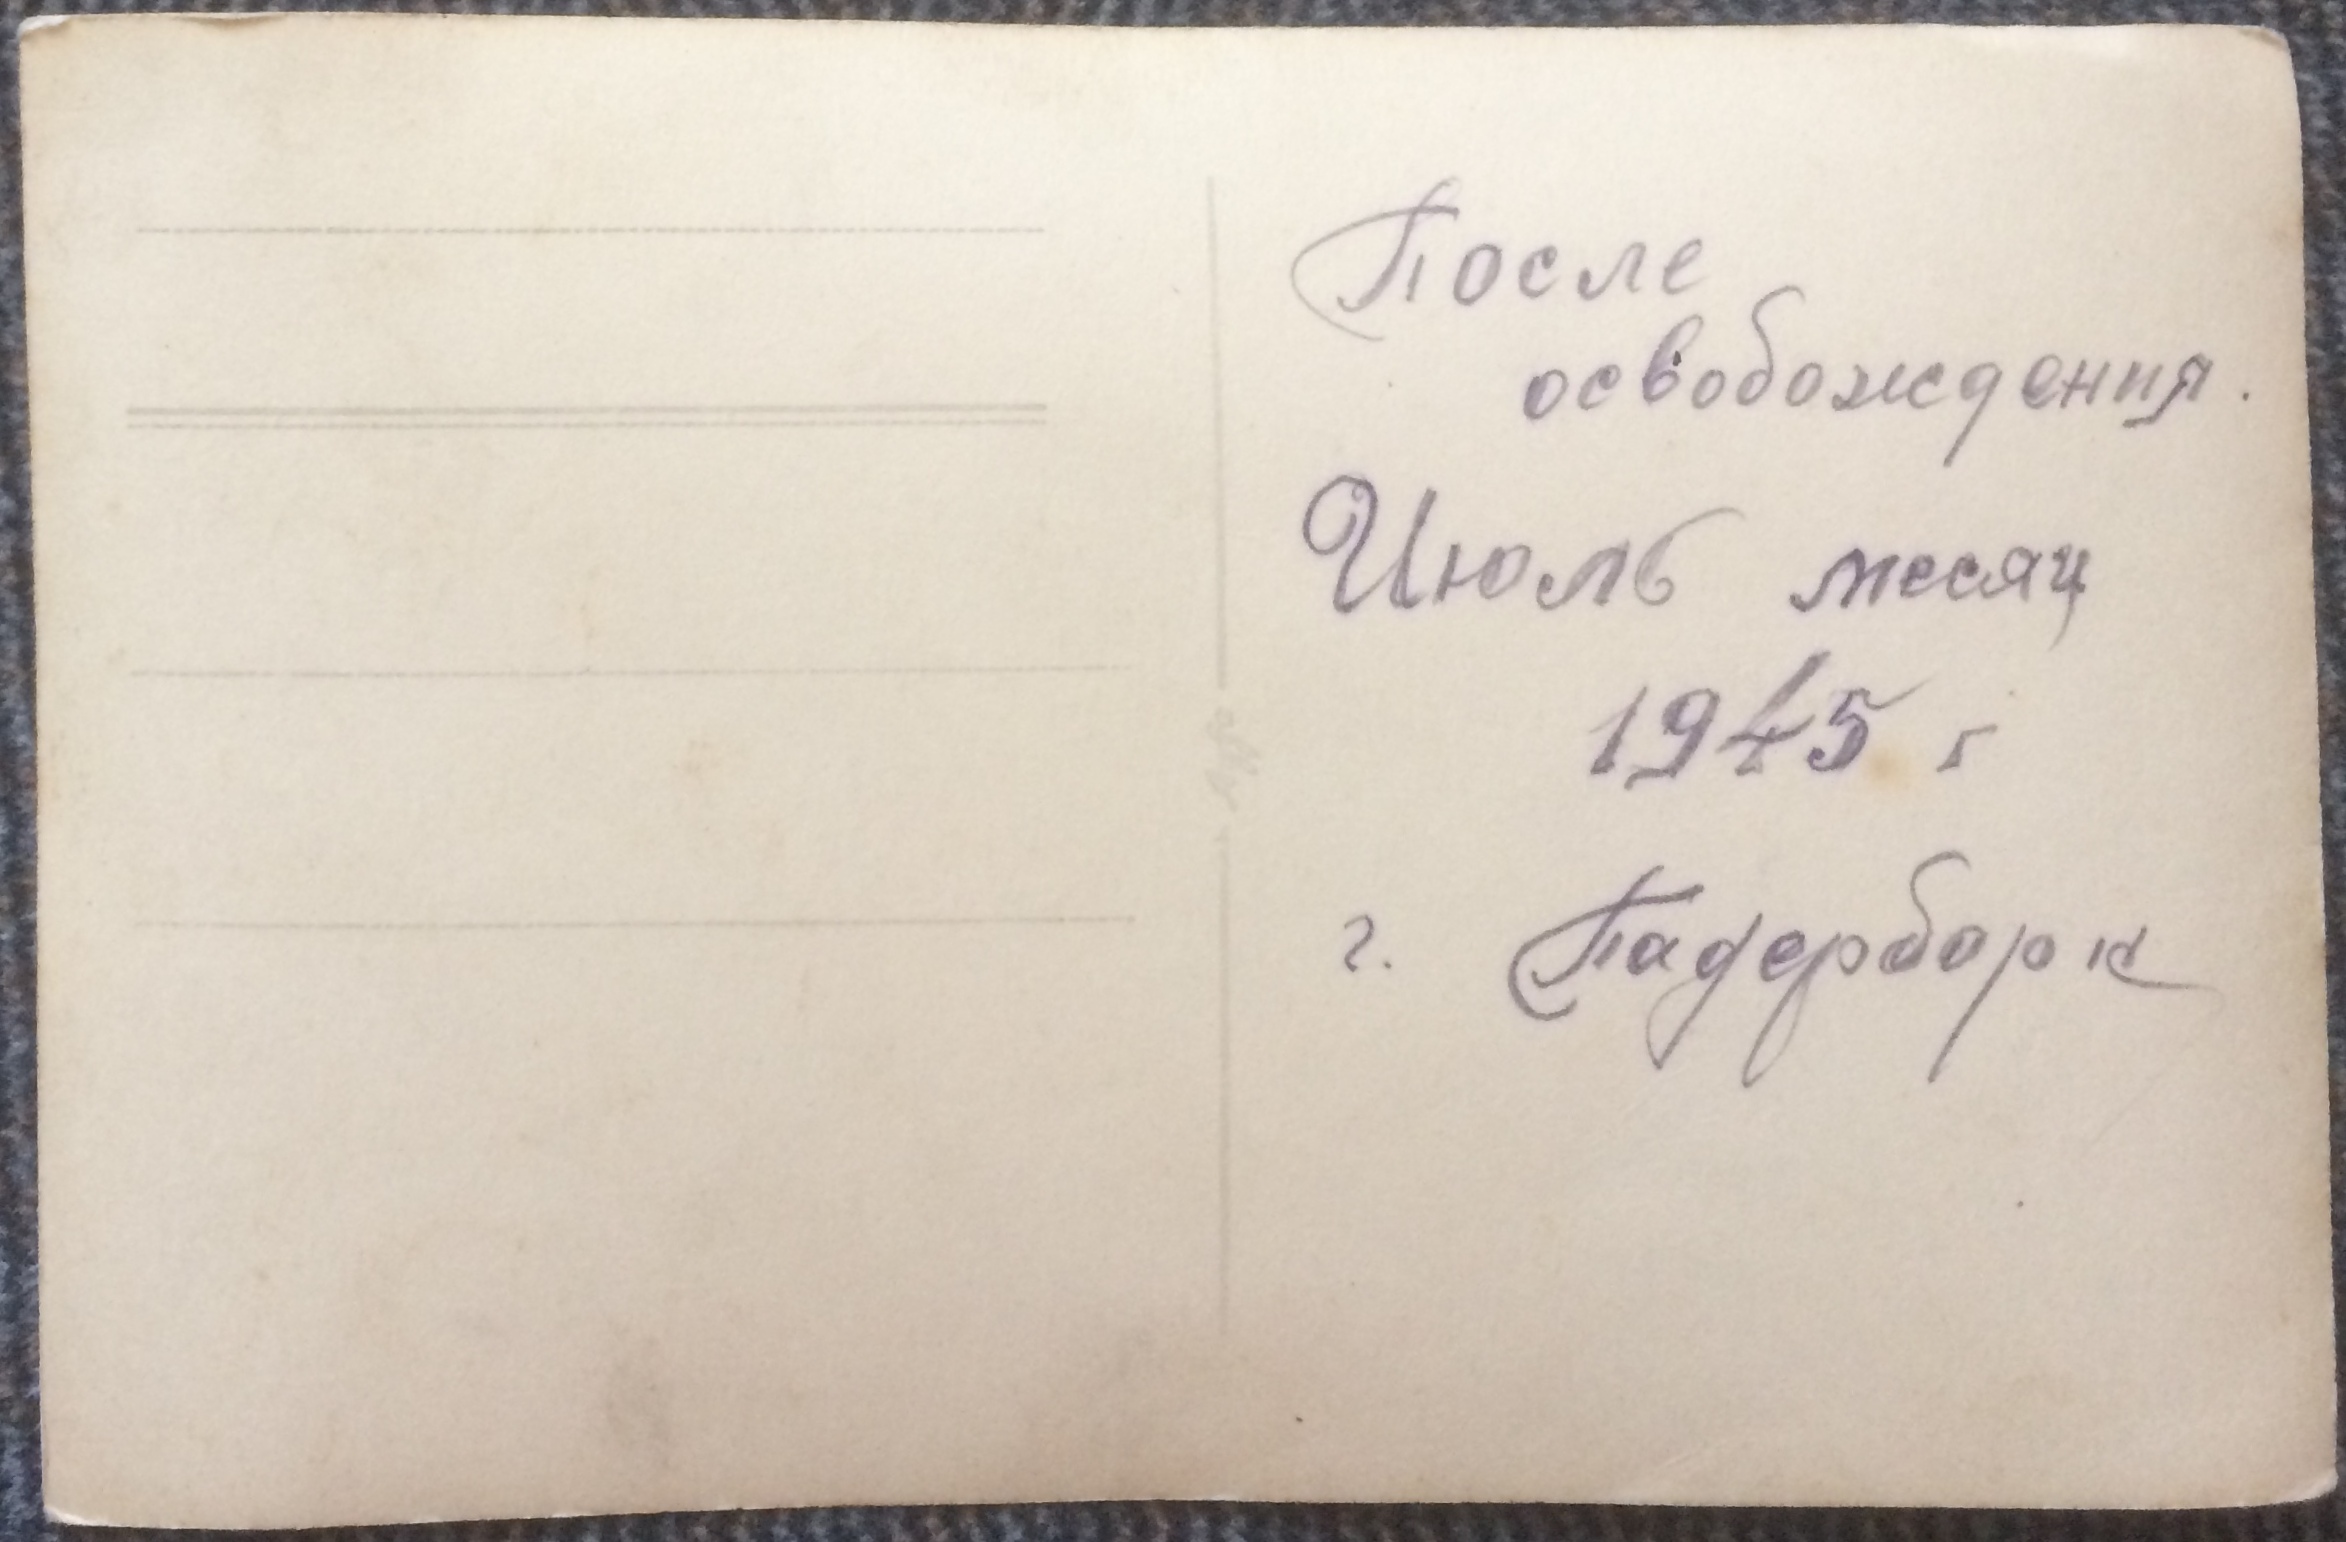 После
освобождения.
Июль месяц
1945 г
г. Падерборк